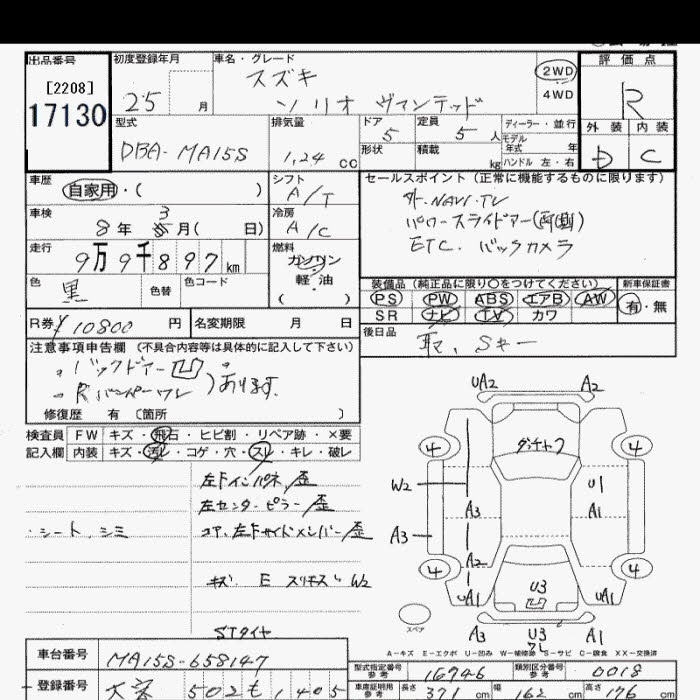 出品番号
[2208]
17130
初度登録年月
25 月
車名・グレード
スズキ
ソリオ ヴァンテッド
2WD
4WD
評価点
R
外装 内装
D C
型式
DBA-MA15S
排気量
1,24 cc
ドア
5
定員
5 人
形状
積載
kg
ディーラー・並行
モデル
年式 年
ハンドル 左・右
車歴
自家用・( )
シフト
A/T
セールスポイント (正常に機能するものに限ります)
外.NAVI.TV
パワースライドアー(両側)
ETC. バックカメラ
車検
8 年 3 月( 日)
冷房
A/C
走行
9万9千897 km
燃料
ガソリン
軽油
( )
色
黒
色替
色コード
装備品 (純正品に限り○をつけてください)
PS PW ABS エアB AW
SR ナビ TV カワ
新車保証書
有・無
R券 ¥10800 円
名変期限 月 日
後日品
取、Sキー
注意事項申告欄 (不具合内容等は具体的に記入して下さい)
・バックドアー凹
・Rバンパーワレ
)あります.
修復歴 有 (箇所 )
検査員
記入欄
FW キズ・飛石・ヒビ割・リペア跡・×要
内装 キズ・汚レ・コゲ・穴・スレ・キレ・破レ
左下インパネ/歪
左センターピラー/歪
・シート、シミ
コア、左Fサイドメンバー/歪
キズ E スリキズ W2
STタイヤ
UA2
A2
4
4
ガッチャフ
W2
U1
A3
A1
A3
A2
4
4
UA1
U3
UA1
スペア
A3
U3
A1
A-キズ E-エクボ U-凹み W-補修跡 S-サビ C-腐食 XX-交換済
車台番号
MA15S-658147
登録番号
大宮 502 も 1405
型式指定番号
参考
16946
類別区分番号
参考
0018
車庫証明用
参考
長さ
371 cm
幅
162 cm
高さ
176 cm